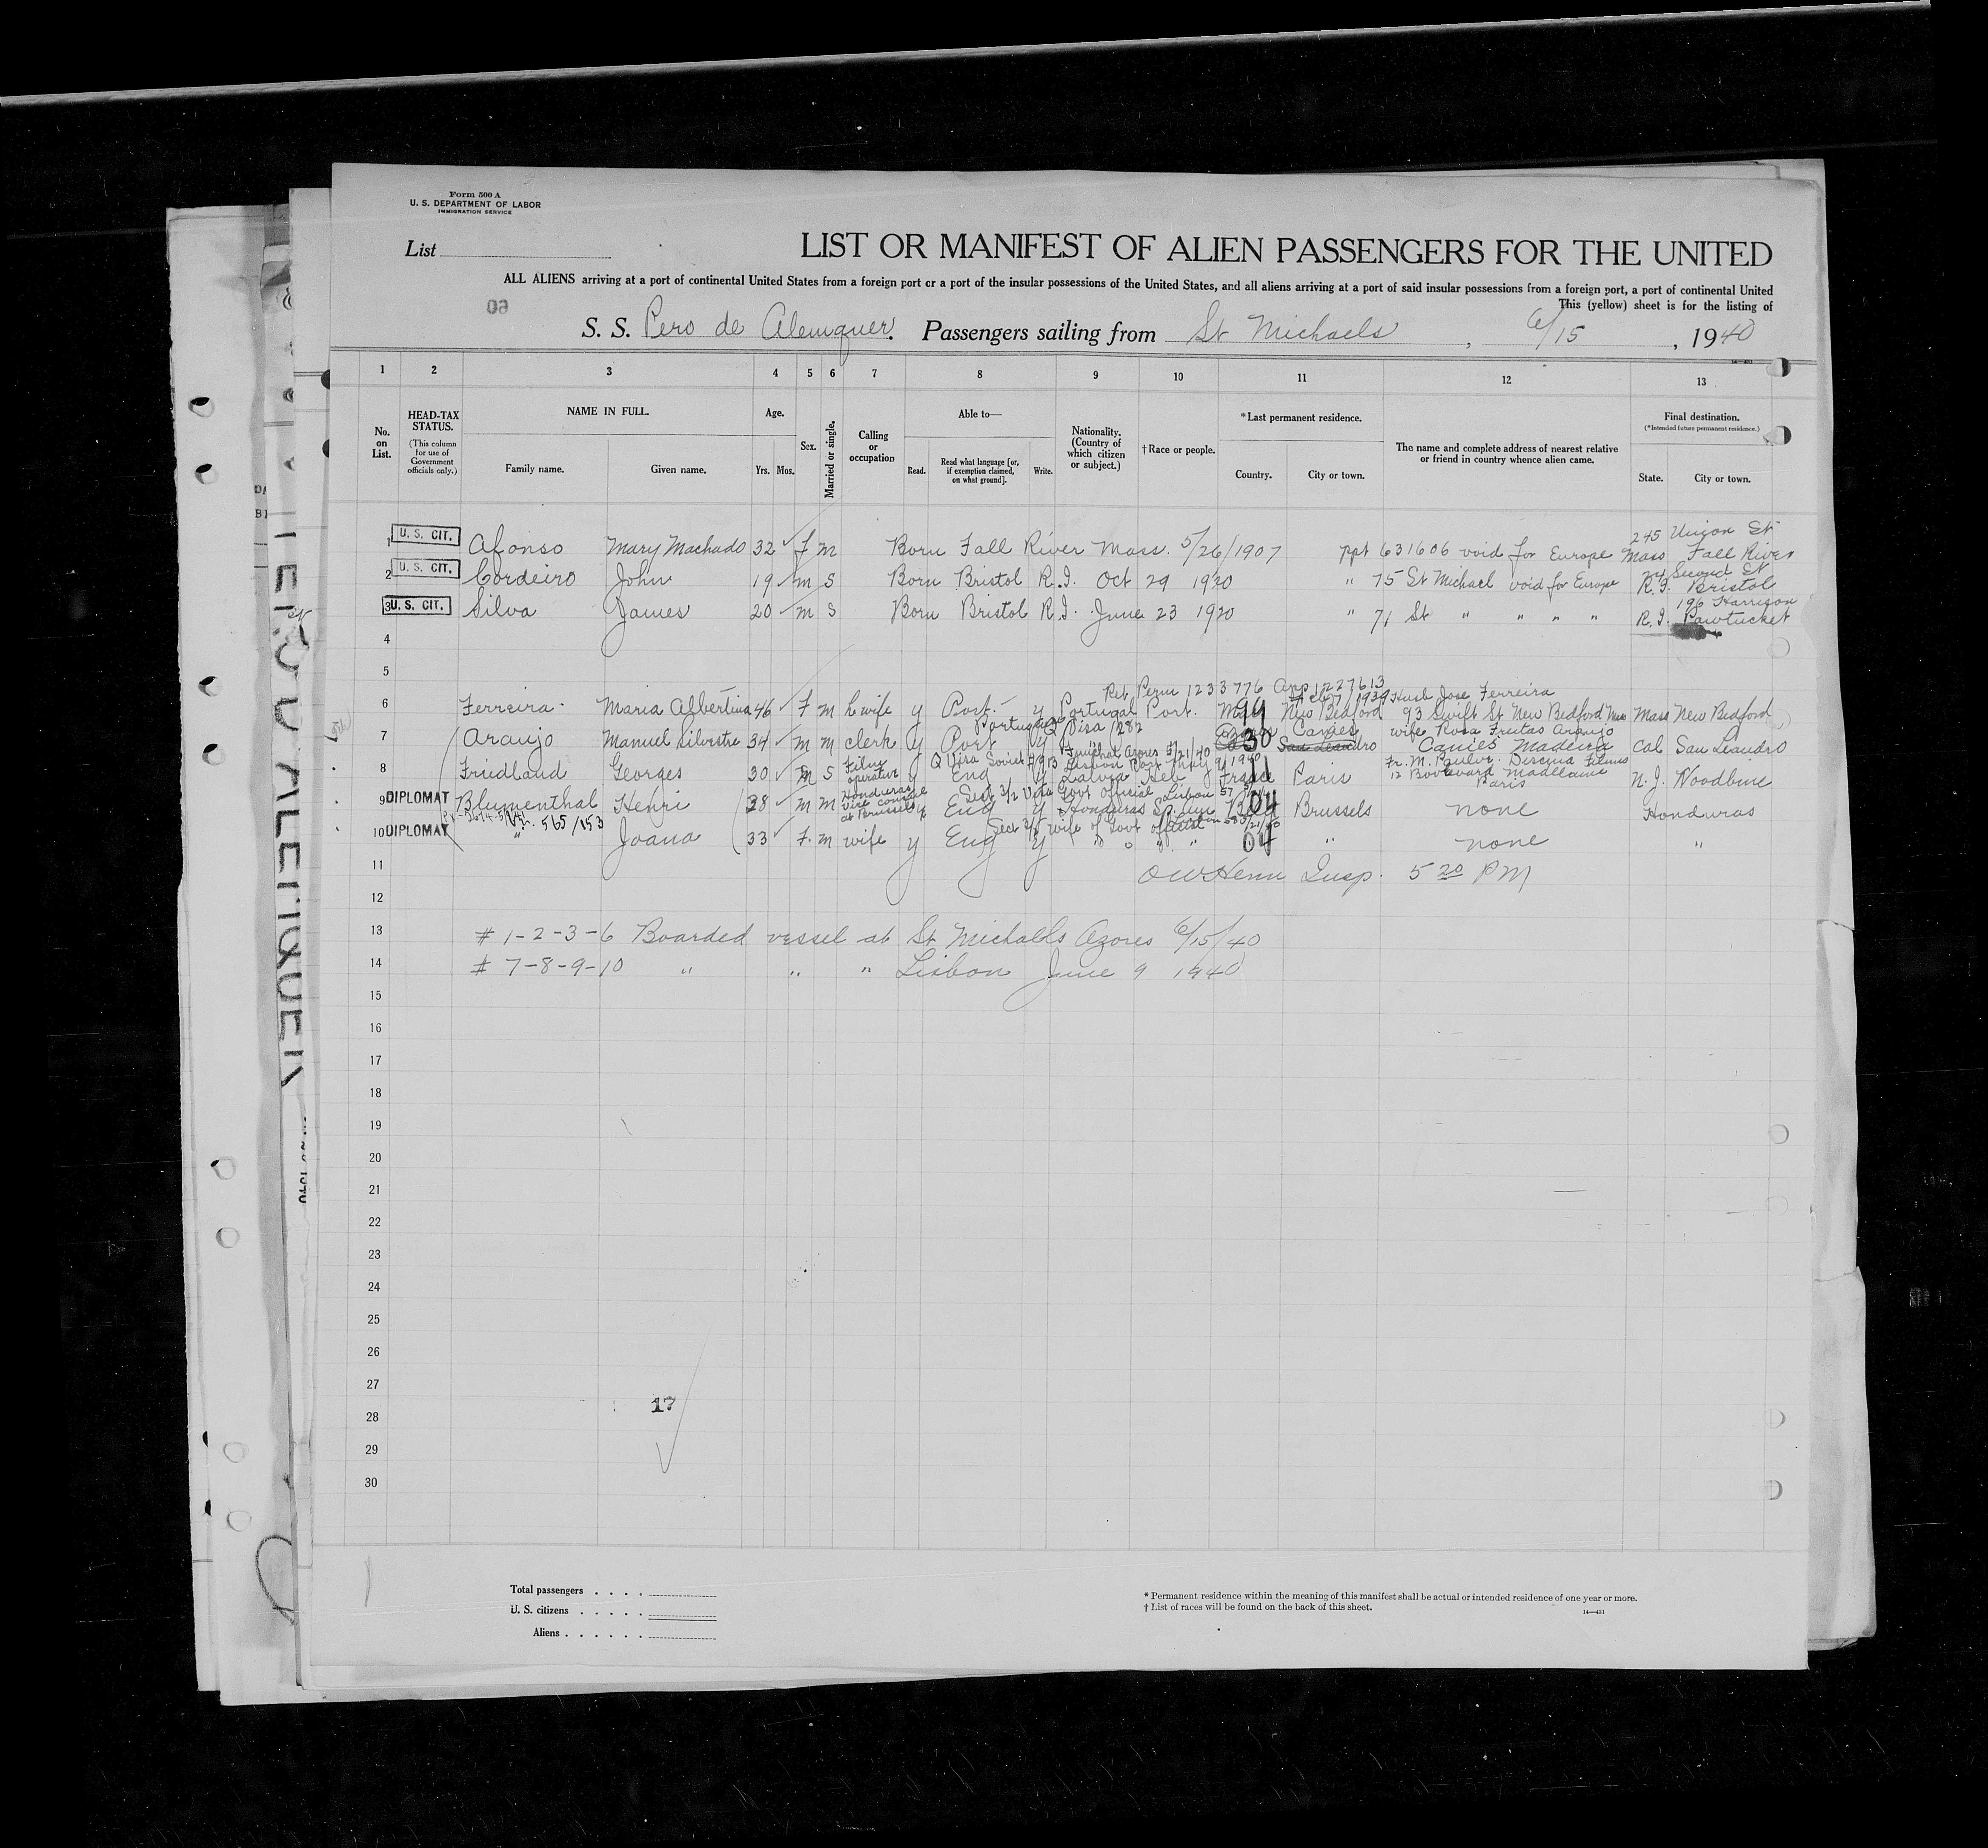 Form 500 A
U. S. DEPARTMENT OF LABOR
IMMIGRATION SERVICE
List
LIST OR MANIFEST OF ALIEN PASSENGERS FOR THE UNITED
ALL ALIENS arriving at a port of continental United States from a foreign port or a port of the insular possessions of the United States, and all aliens arriving at a port of said insular possessions from a foreign port, a port of continental United
This (yellow) sheet is for the listing of
S. S. Pero de Alemquer. Passengers sailing from St Michaels, 6/15, 1940
1 2 3 4 5 6 7 8 9 10 11 12 13
No. on List.
HEAD-TAX STATUS. (This column for use of Government officials only.)
NAME IN FULL.
Family name. Given name.
Age. Yrs. Mos.
Sex.
Married or single.
Calling or occupation
Able to—
Read. Read what language [or, if exemption claimed, on what ground]. Write.
Nationality. (Country of which citizen or subject.)
†Race or people.
*Last permanent residence.
Country. City or town.
The name and complete address of nearest relative or friend in country whence alien came.
Final destination.
(*Intended future permanent residence.)
State. City or town.
245 Union St
1 U. S. CIT. Afonso Mary Machado 32 f m Born Fall River Mass. 5/26/1907 ppt 631606 void for Europe Mass Fall River
Second St
2 U. S. CIT. Cordeiro John 19 m s Born Bristol R.I. Oct 29 1920 " 75 St Michael void for Europe R.I. Bristol
196 Harrison
3 U. S. CIT. Silva James 20 m s Born Bristol R.I. June 23 1920 " 71 St " " " " R.I. Pawtucket
4
5
Ret Perm 1233776 1227613
6 Ferreira Maria Albertina 46 F m h wife y Port. y Portugal Port. New Bedford Husb Jose Ferreira 93 Swift St New Bedford Mass Mass New Bedford
Portugal Q Visa 1282
7 Araujo Manuel Silvestre 34 m m clerk y Port y 30 San Leandro wife Rosa Freitas Araujo Canics Madeira Cal San Leandro
8 Friedland Georges 30 m S Film operator y Eng y Latvia Heb France Paris Fr. M. Discina Films 12 Boulevard Madelaine Paris N.J. Woodbine
9 DIPLOMAT Blumenthal Henri 38 m m Honduras vice consul at Brussels y Eng y Honduras 04 Brussels none Honduras
Sect 3/1 wife of Govt official
10 DIPLOMAT " 565/153 Joana 33 F. m wife y Eng y " " " " 04 " none "
11 Insp. 5 20 PM
12
13 # 1-2-3-6 Boarded vessel at St Michaels Azores 6/15/40
14 # 7-8-9-10 " " " Lisbon June 9 1940
15
16
17
18
19
20
21
22
23
24
25
26
27
17
28
29
30
Total passengers . . . .
U. S. citizens . . . . .
Aliens . . . . . .
* Permanent residence within the meaning of this manifest shall be actual or intended residence of one year or more.
† List of races will be found on the back of this sheet.
14—431